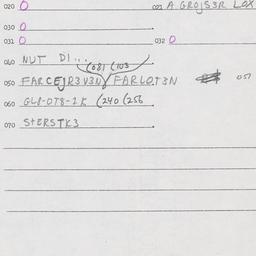 020 O 021 A GROJS3R LOX
030 O
031 O 032 O
040 NUT DI...
(081 (103
050 FARCEJR3V3N FARLOT3N 051
060 GL8-OT8-1K (240 (256
070 STERSTK3